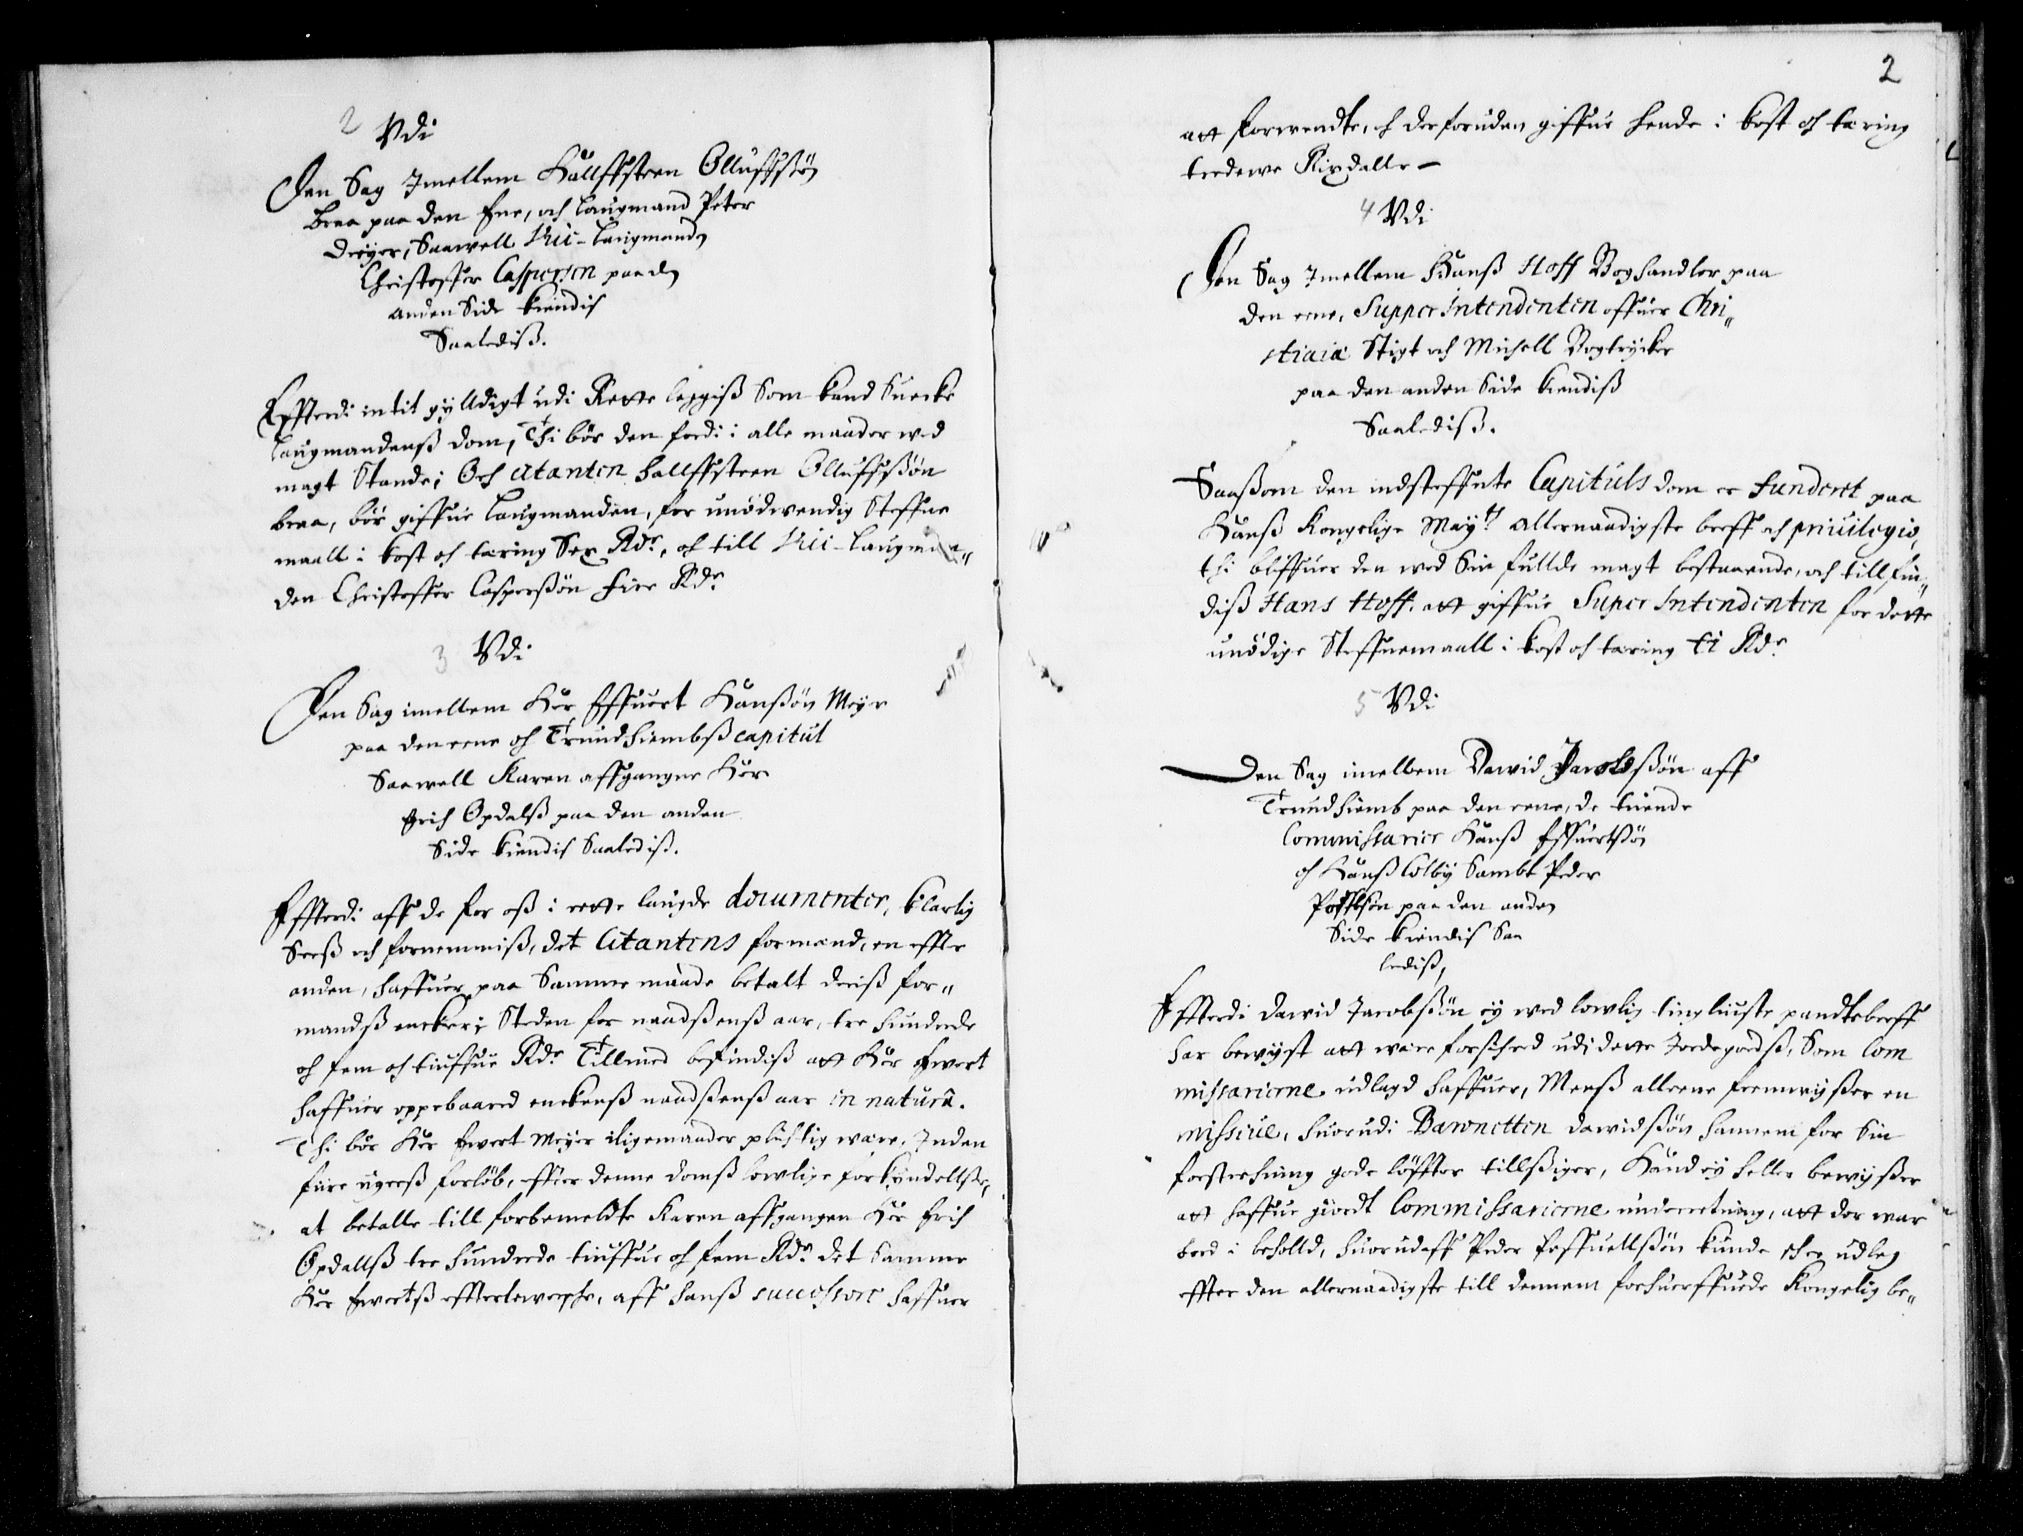 2 Vdi
Den Sag Imellem Hallffsteen Olluffsøn
Braa paa den Ene, och laugmand Peter
Dreyer, Saawell Vice-laugmand
Christoffer Caspersen paa d
anden Side kiendis
Saalediß.
Effterdi intit gylldigt udi Rette leggiß Som kand Suecke
laugmandenß dom, Thi bør den fordi i alle maader wed
magt Stande; Och Citanten Hallffsteen Olluffsøn
braa, bør giffue laugmanden, for unødwendig Steffne
maall i kost och tæring Sex Rdr, och till Vice-laugman„
den Christoffer Casperßøn fire Rdr
3 Vdi
Den Sag imellem Her Effuert Hanßøn Meyer
paa den eene och Trundhiembß Capitul
Saawell Karen affgangne Her
Erich Opdalß paa den anden
Side kiendis Saalediß.
Effterdi aff de for oß i rette laugde documenter, klarlig
Seeß och fornemmiß, det Citantens formænd, en effter
anden, haffuer paa Samme maade betalt deriß for„
mandß encker; Steden for naadßenß aar, tre hundrede
och fem och tiuffue Rdr Tillmed befindiß att Her Ewert
haffuer oppebaared enckenß naadßenß aar in natura.
Thi bør Her Ewert Meyer iligemaader plichtig wære, Inden
fiire ugerß forløb, effter denne domß lowlige forkyndellse,
at betalle till forbemeldte Karen affgangen Her Erich
Opdallß tre hundrede tiuffue och fem Rdr det Samme
Her Ewertß effterlewerske, aff hanß successore haffuer
2
att forwendte, och der foruden giffue hende i kost och tæring
tredewe Rixdaller –
4 Vdi
Den Sag Imellem Hanß Hoff Boghandler paa
den eene, Supperintendenten offuer Chri„
stiania Stigt och Michell Bogtrycker
paa den anden Side kiendiß
Saalediß.
Saaßom den indsteffnte Capituls dom er funderet paa
Hanß Kongelige Mayts allernaadigste breff och privilegio,
thi bliffuer den wed Sin fullde magt bestaaende, och tillfin„
diß Hans Hoff. att giffue Superintendenten for dette
unødige Steffnemaall i kost och tæring ti Rdr
5 Vdi
Den Sag imellem Dawid Jacobßøn aff
Trundhiemb paa den eene, de tuende
Commissarier Hanß Effuertßøn
och Hanß Colby Sambt Peder
Poffelsøn paa den anden
Side kiendis Saa
lediß,
Effterdi Dawid Jacobßøn ey wed lowlig tingliuste pandtebreff
har bewyst att wære forsichred udi dette Jordegodß, Som Com
missarierne udlagd haffuer, Menß alleene fremwyßer en
missive, huorudi Baronetten Dawidßøn hannem for Sin
forstrechning gode løffter tillßiger, Kand ey heller bewyßer
att haffue giordt Commissarierne underretning, att der war
bred i beholld, huorudaff Peder Poffuellßøn kunde skee udleg
effter den allernaadigste till dennem forhuerffuede Kongelig be„